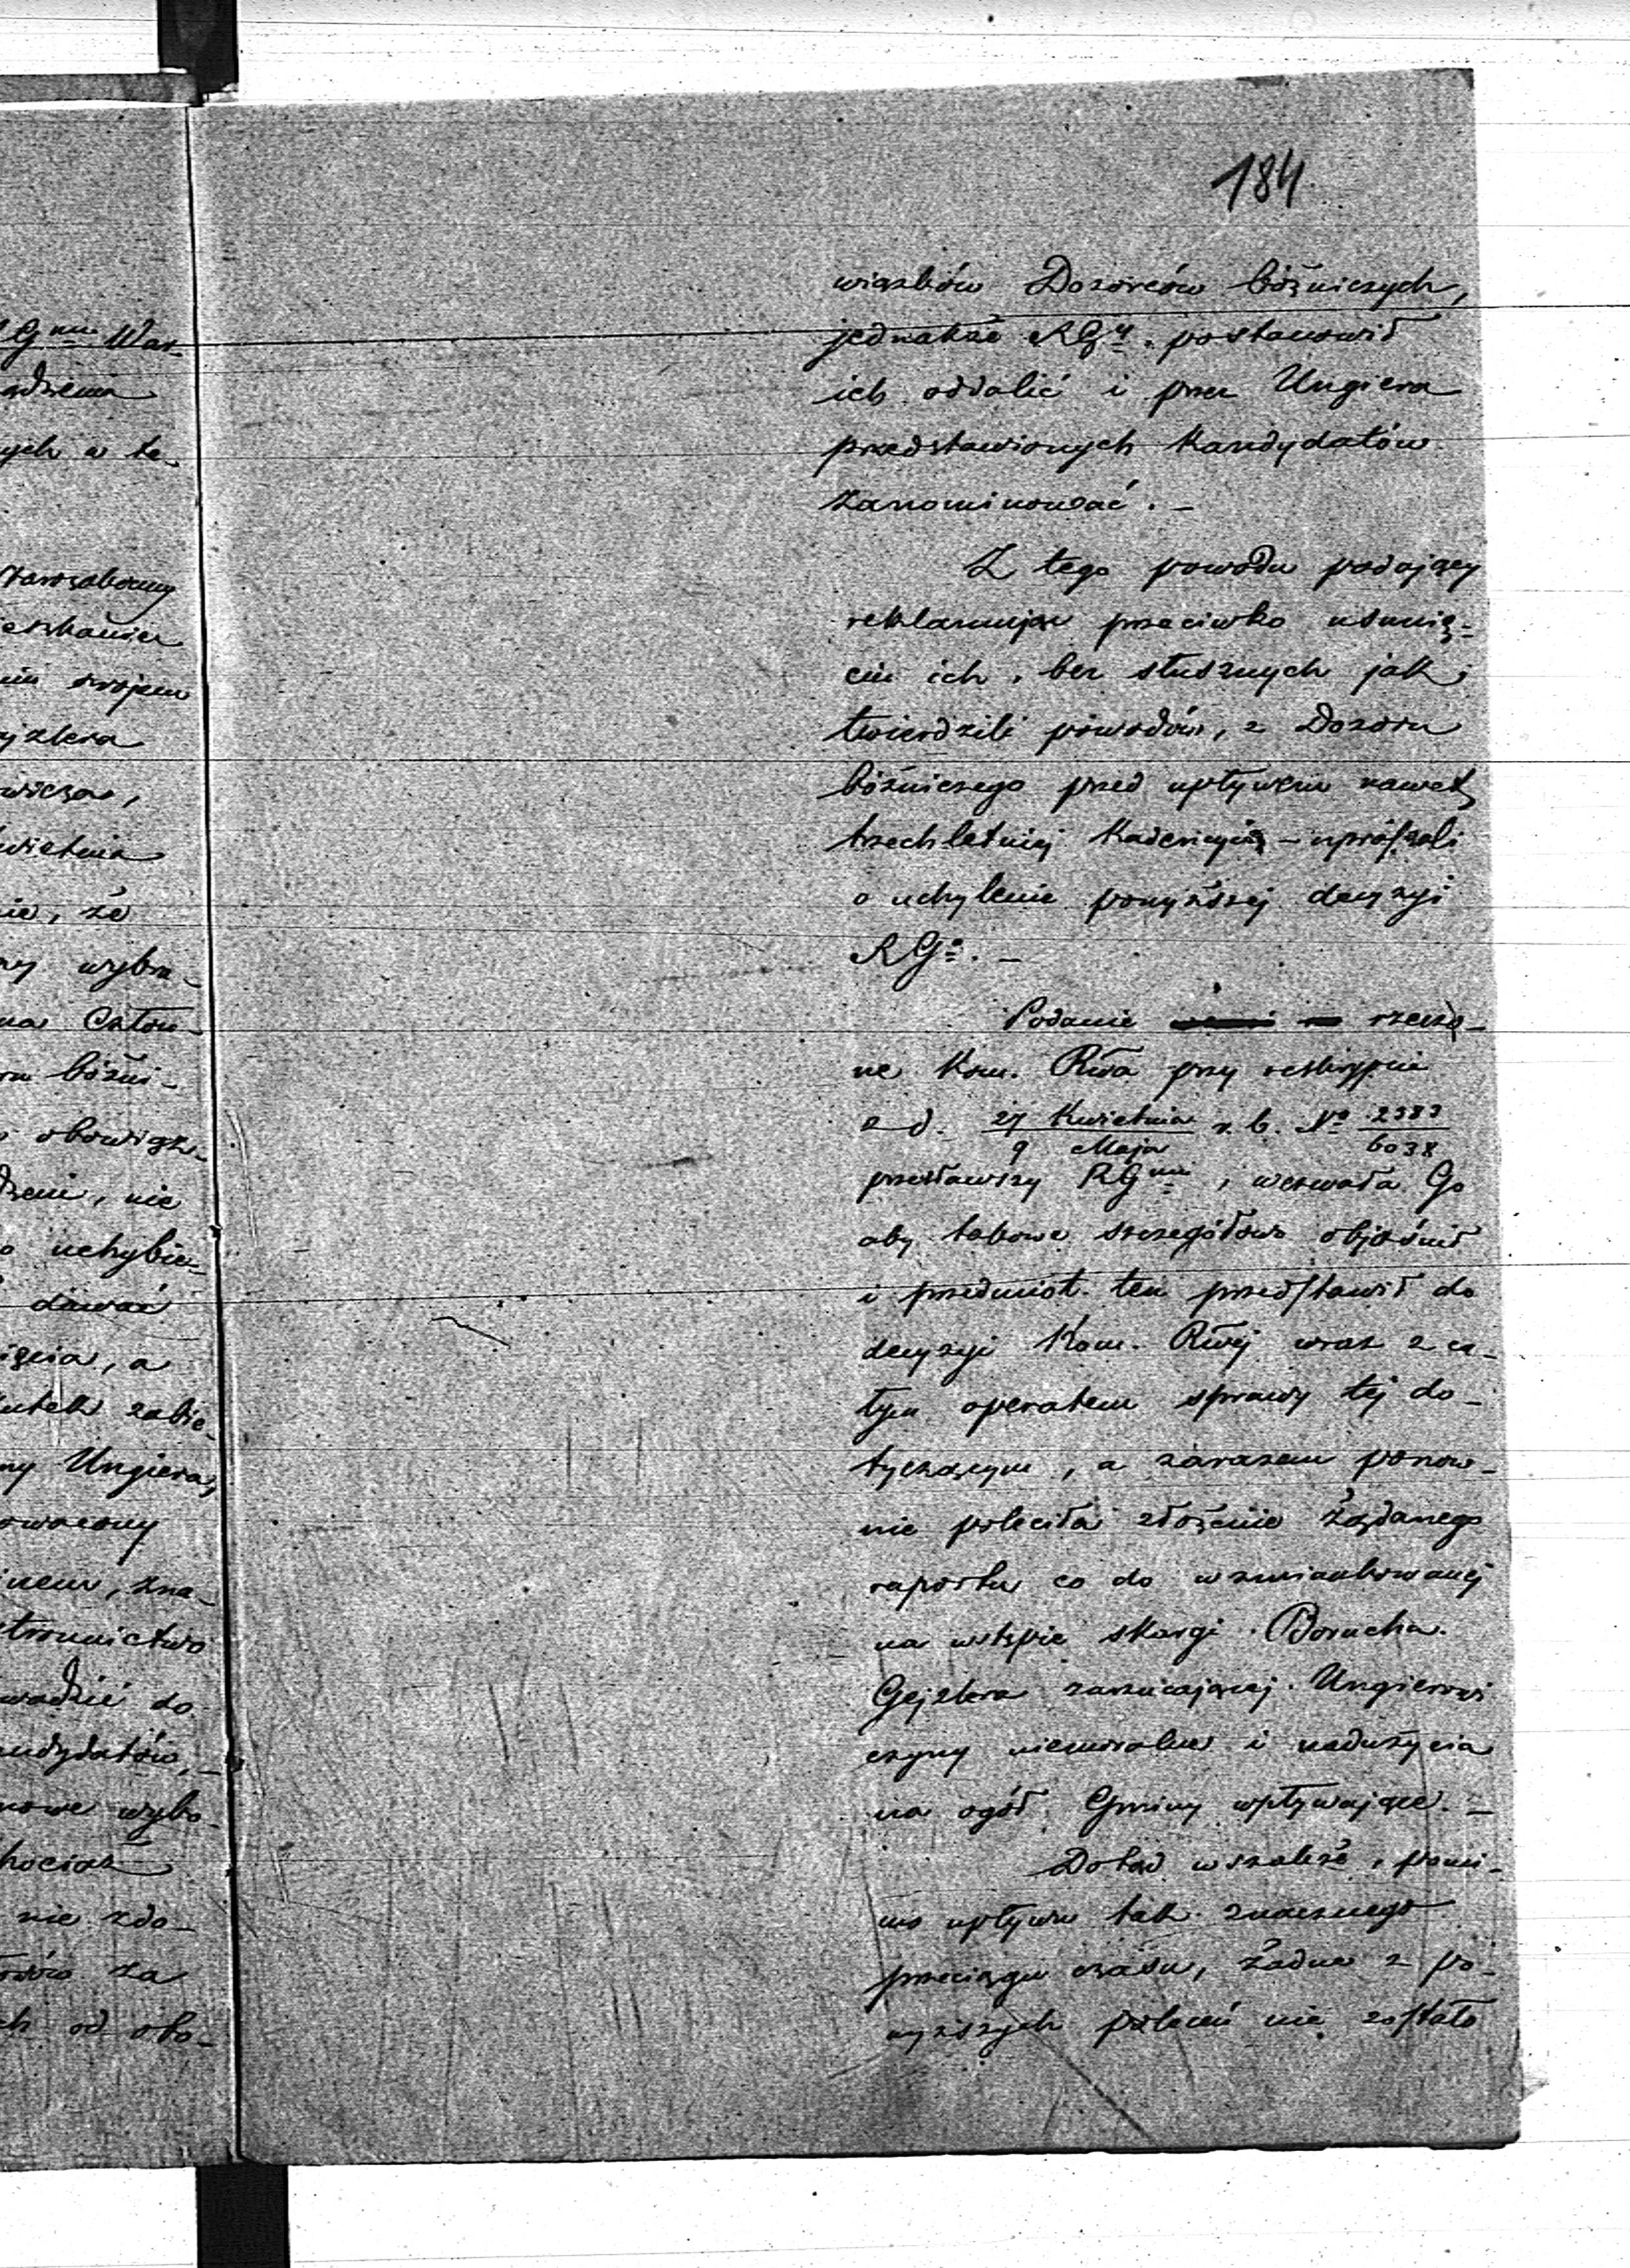 184
wiązków Dozorców bóżniczych,
jednakże RGy. postanowił
ich oddalić i przez Ungiera
przedstawionych Kandydatów
zanominować. -
Z tego powodu podający
reklamując przeciwko usunię-
ciu ich, bez słusznych jak
twierdzili powodów, z Dozoru
bóżniczego przed upływem nawet
trzechletniej Kadencyi - uprószali
o uchylenie powyższej decyzyi
RGo. -
Podanie rzeczo-
ne Kom. Rwa przy reskrypcie
z d. 27 Kwietnia / 9 Maja r. b. No 2383 / 6038
przesławszy RGwi, wezwała Go
aby takowe szczegółowo objaśnił
i przedmiot ten przedstawił do
decyzyi Kom. Rwej wraz z ca-
łym operatem sprawy tej do-
tyczącym, a zarazem ponow-
nie poleciła złożenie żądanego
raportu co do wzmiankowanej
na wstępie skargi Borucha
Gejzlera zarzucającej Ungierowi
czyny niemoralne i nadużycia
na ogół Gminy wpływające. -
Dotąd wszakże, pomi-
mo upływu tak znacznego
przeciągu czasu, żadne z po-
wyższych poleceń nie zostało
Gnu War-
ądzenia
ych w te
eszkaniec
swojem
jzlera
wicza,
wietnia
nie, że
ny wybra-
na Człon-
bóżni-
obowiązk-
dzeni, nie
uchybie-
dawać
ięcia, a
utek zabie-
ny Ungiera,
owacony
inem, zna-
tronnictwo
wadzić do
andydatów, -
nowe wybo-
hociaż
nie zdo-
za
ch od obo-